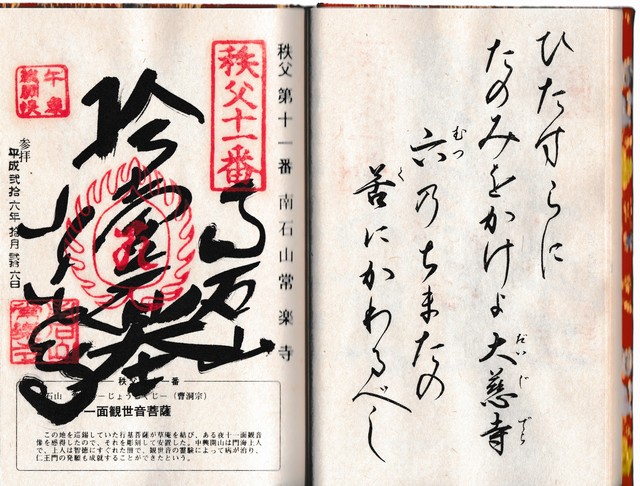 ひたすらに
たのみをかけよ大慈寺
だいじでら
六乃ちまたの
むつ
苦にかわるべし
く
秩父第十一番 南石山常楽寺
秩父十一番
南石山
午歳
総開帳
参拝
平成弐拾六年 拾月 零六日
秩父十一番
石山
―じょうらくじ―(曹洞宗)
一面観世音菩薩
この地を巡錫していた行基菩薩が草庵を結び、ある夜十一面観音
像を感得したので、それを彫刻して安置した。中興開山は門海上人
で、上人は智徳にすぐれた僧で、観世音の霊験によって病が治り、
仁王門の発願も成就することができたという。